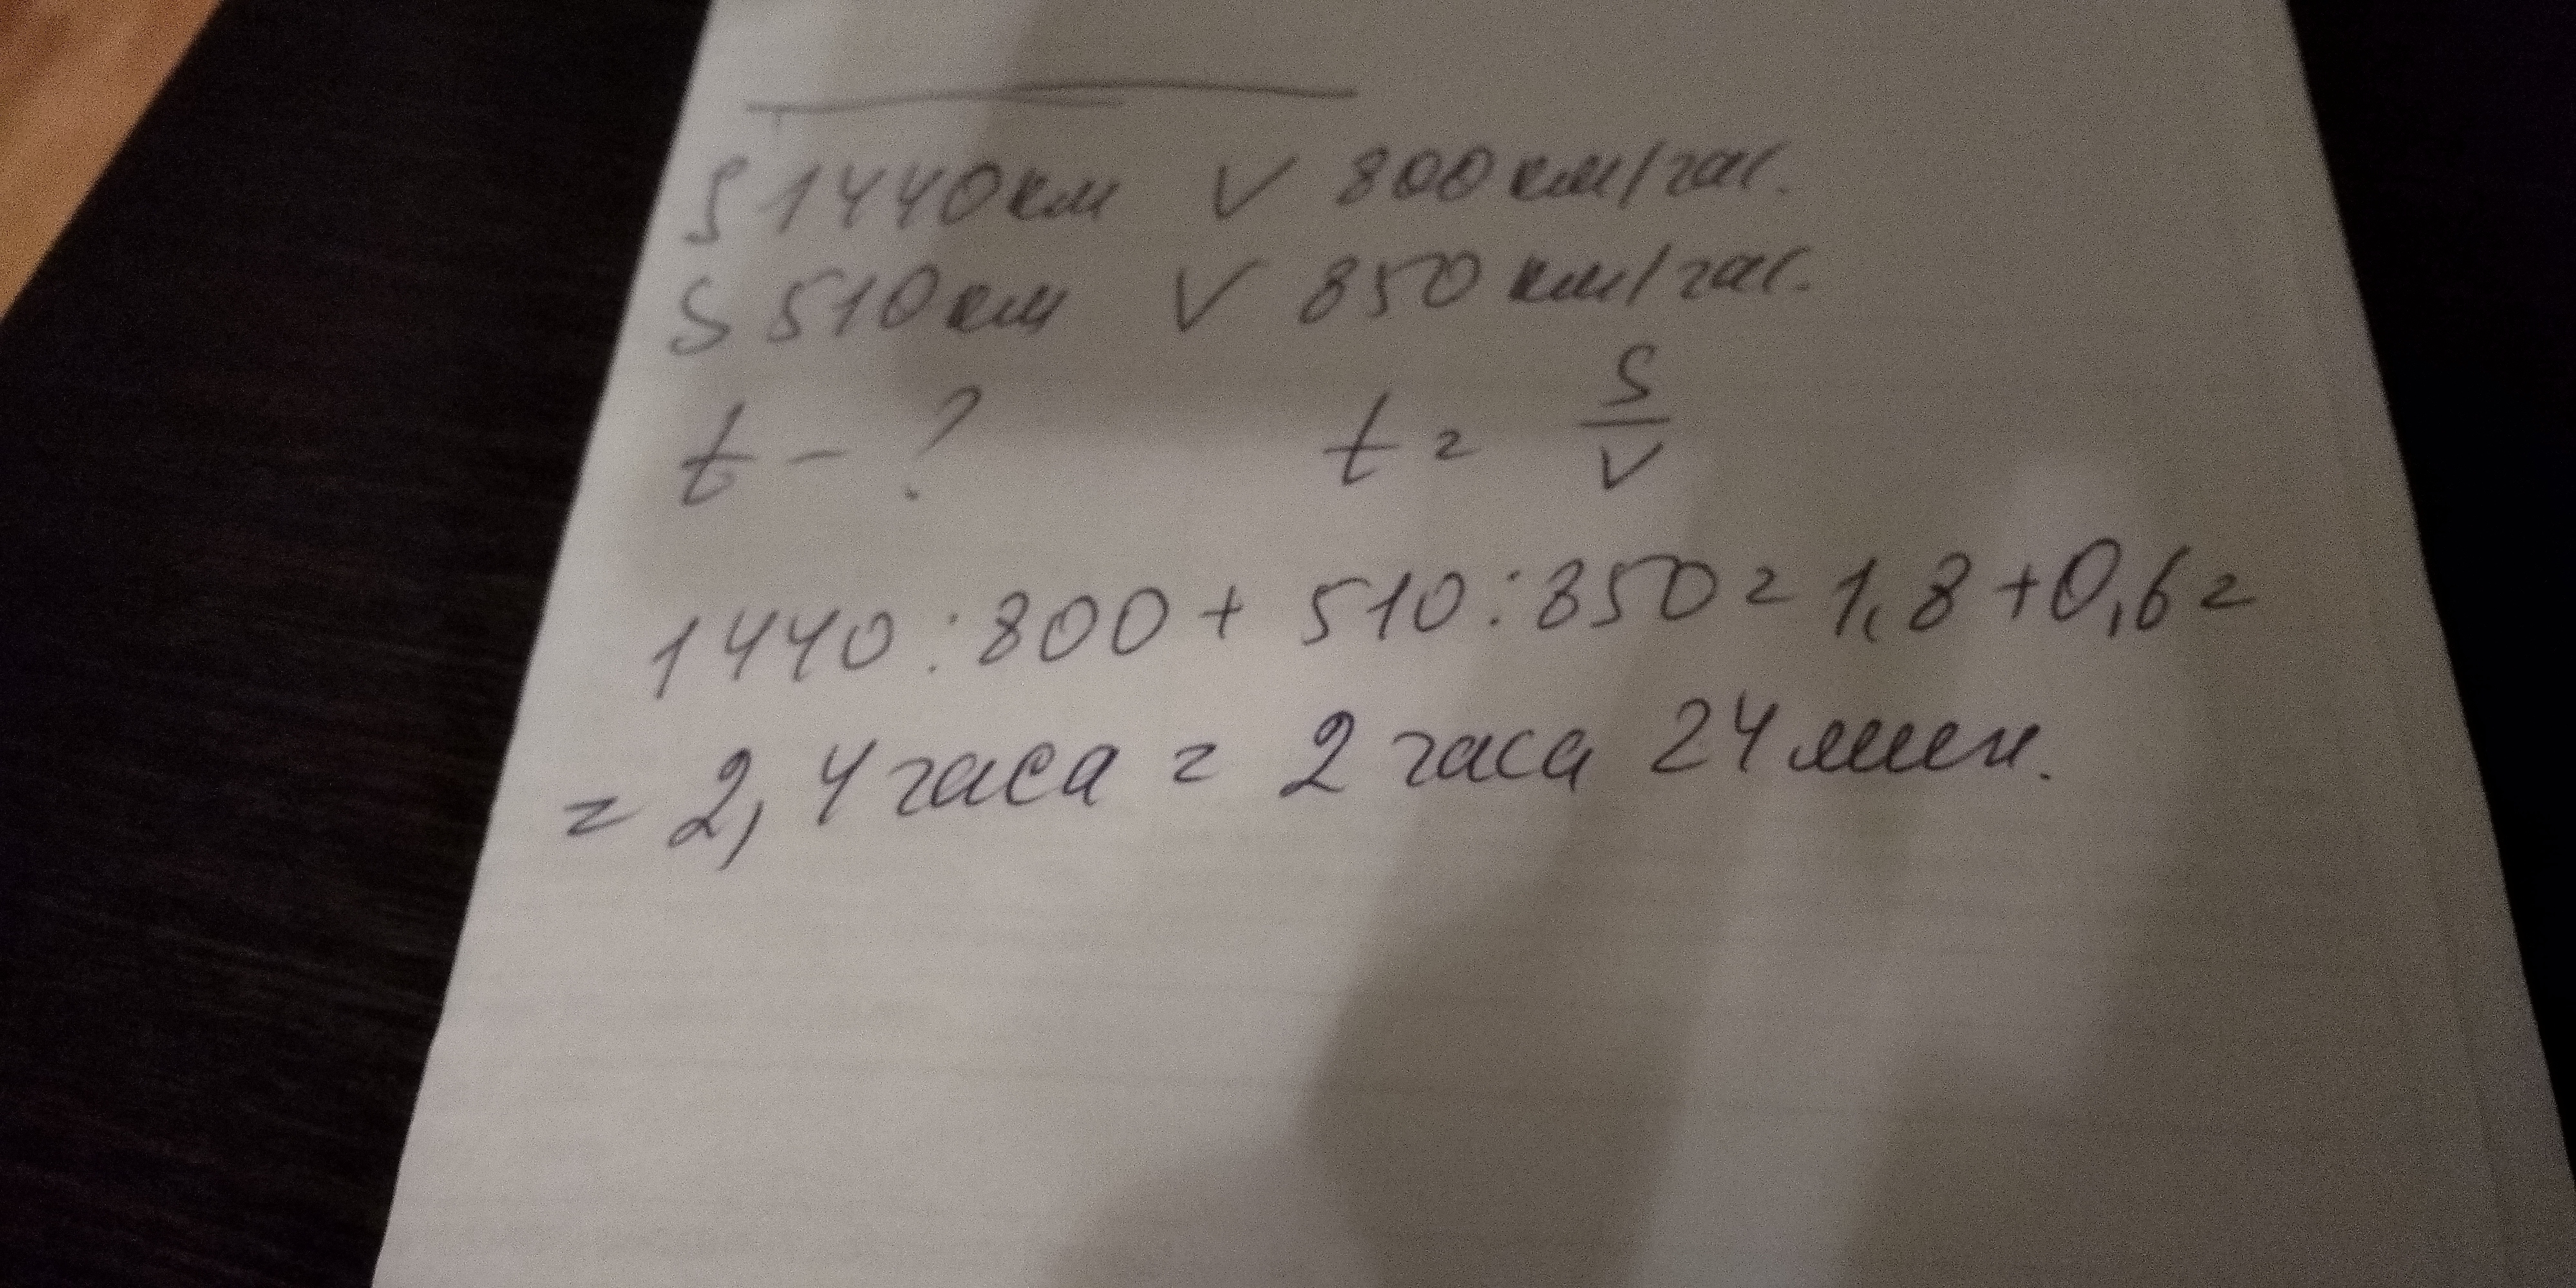 S 1440 км V 800 км/час.
S 510 км V 850 км/час.
t - ? t = S/V
1440 : 800 + 510 : 850 = 1,8 + 0,6 =
= 2,4 часа = 2 часа 24 мин.